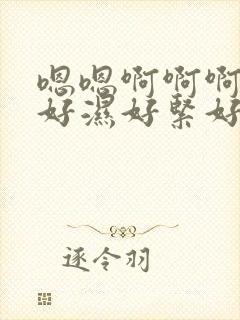 嗯嗯啊啊啊
好濕好緊好
逐令羽